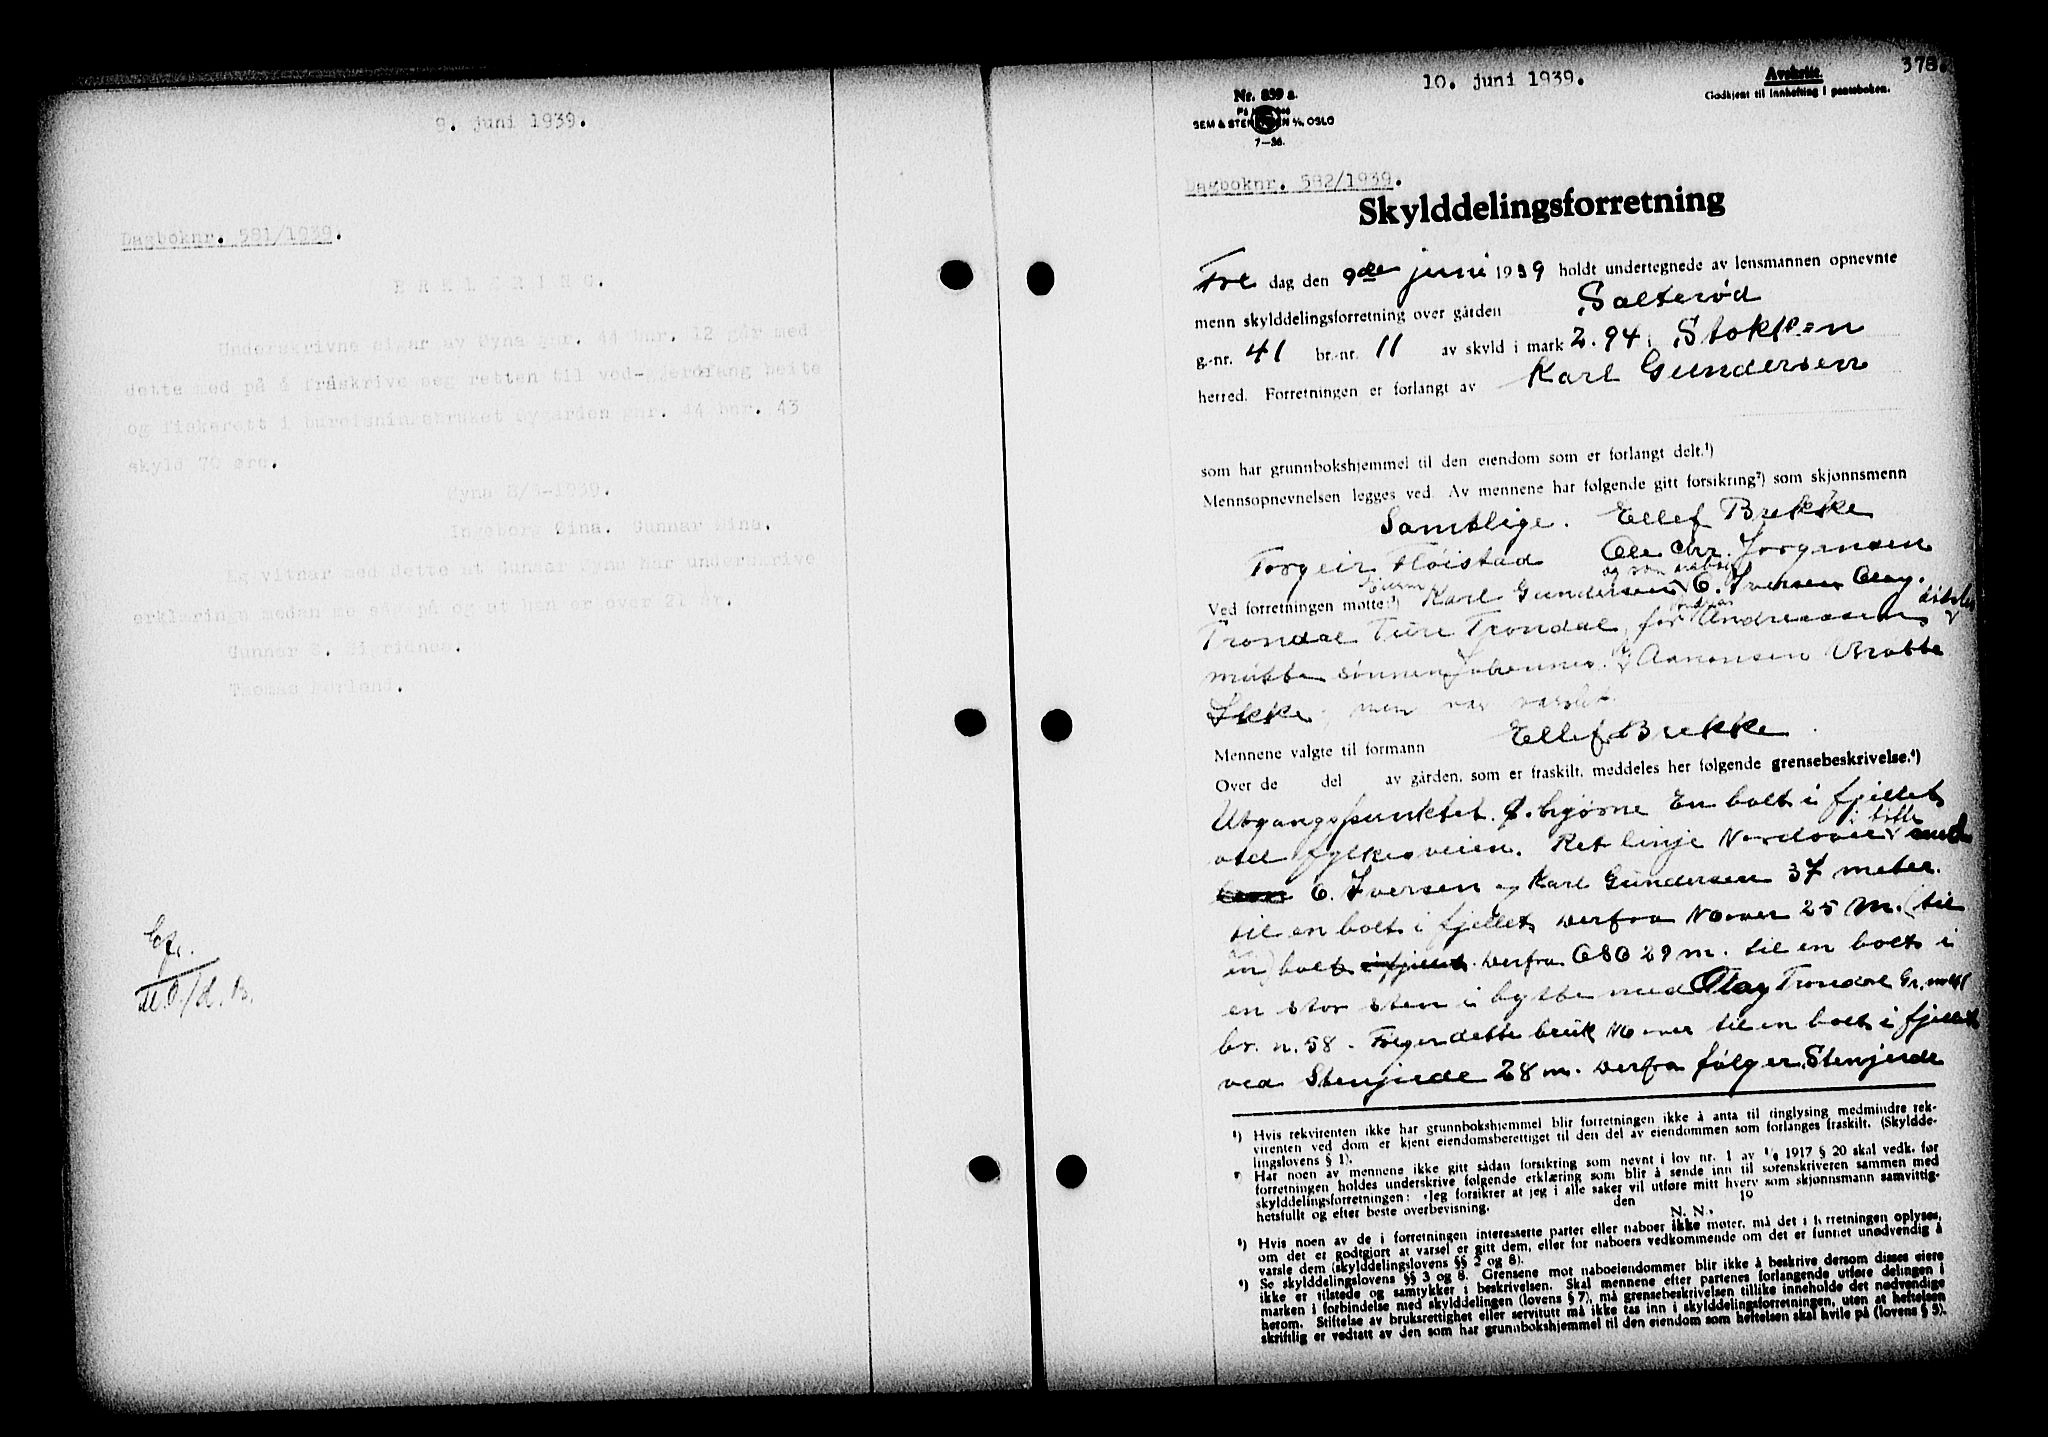 9. juni 1939.
Dagboknr. 581/1939.
ERKLÆRING.
Underskrivne eigar av Øyna gnr. 44 bnr. 12 går med
dette med på å fråskrive seg retten til ved-gjerdfang beite
og fiskerett i bureisningsbruket Nygarden gnr. 44 bnr. 43
skyld 70 øre.
Øyna 8/5-1939.
Ingeborg Øina. Gunnar Øina.
Eg vitnar med dette at Gunnar Øyna har underskrive
erklæringa medan me såg på og at han er over 21 år.
Gunnar S. Sigridnes.
Thomas Mørland.
10. juni 1939.
Avskrift.
378.
Godkjent til innhefting i panteboken.
Nr. 839 a.
SEM & STENERSEN A/S, OSLO
7—36.
Dagboknr. 582/1939.
Skylddelingsforretning
Fre dag den 9de juni 1939 holdt undertegnede av lensmannen opnevnte
menn skylddelingsforretning over gården Salterød
g.-nr. 41 br.-nr. 11 av skyld i mark 2.94 i Stokken
herred. Forretningen er forlangt av Karl Gundersen
som har grunnbokshjemmel til den eiendom som er forlangt delt.¹)
Mennsopnevnelsen legges ved. Av mennene har følgende gitt forsikring²) som skjønnsmenn
Samtlige. Ellef Brekke
Torgeir Fløistad Ole Chr. Jørgensen
Ved forretningen møtte:³) Eieren Karl Gundersen og som naboer C. Iversen Olay.
Trondal Ture Trondal, for Andreassen
møtte sønnen Johannes. Aanonsen Møtte
Ikke, men var varslet.
Mennene valgte til formann Ellef Brekke
Over de del av gården, som er fraskilt, meddeles her følgende grensebeskrivelse.⁴)
Utgangspunktet Ø. hjørne En bolt i fjellet
ved fylkesveien. Ret linje Nordover i dele med
C. Iversen og Karl Gundersen 37 meter.
til en bolt i fjellet derfra NOver 25 m. (til
en) bolt i fjellet. Derfra OSO 29 m. til en bolt i
en stor sten i bytte med Olay Trondal Gr. n 41
br. n. 58. Følger dette bruk NOover til en bolt i fjellet
ved Stenjerde 28 m. Derfra følger Stenjerde
¹) Hvis rekvirenten ikke har grunnbokshjemmel blir forretningen ikke å anta til tinglysing medmindre rek-
virenten ved dom er kjent eiendomsberettiget til den del av eiendommen som forlanges fraskilt. (Skyldde-
lingslovens § 1).
²) Har noen av mennene ikke gitt sådan forsikring som nevnt i lov nr. 1 av 1/6 1917 § 20 skal vedk. før
forretningen holdes underskrive følgende erklæring som blir å sende inn til sorenskriveren sammen med
skylddelingsforretningen: »Jeg forsikrer at jeg i alle saker vil utføre mitt hverv som skjønnsmann samvittig-
hetsfullt og efter beste overbevisning. den 19
N. N.
³) Hvis noen av de i forretningen interesserte parter eller naboer ikke møter, må det i forretningen oplyses,
om det er godtgjort at varsel er gitt dem, eller for naboers vedkommende om det er funnet unødvendig å
varsle dem (skylddelingslovens §§ 2 og 8).
⁴) Se skylddelingslovens §§ 3 og 8. Grensene mot naboeiendommer blir ikke å beskrive dersom disses eiere
ikke er tilstede og samtykker i beskrivelsen. Skal mennene efter partenes forlangende utføre delingen i
marken i forbindelse med skylddelingen (lovens § 7), må grensebeskrivelsen tillike inneholde det nødvendige
herom. Stiftelse av bruksrettighet eller servitutt må ikke tas inn i skylddelingsforretningen, uten at heftelsen
skriftlig er vedtatt av den som har grunnbokshjemmel til den eiendom som heftelsen skal hvile på (lovens § 5).